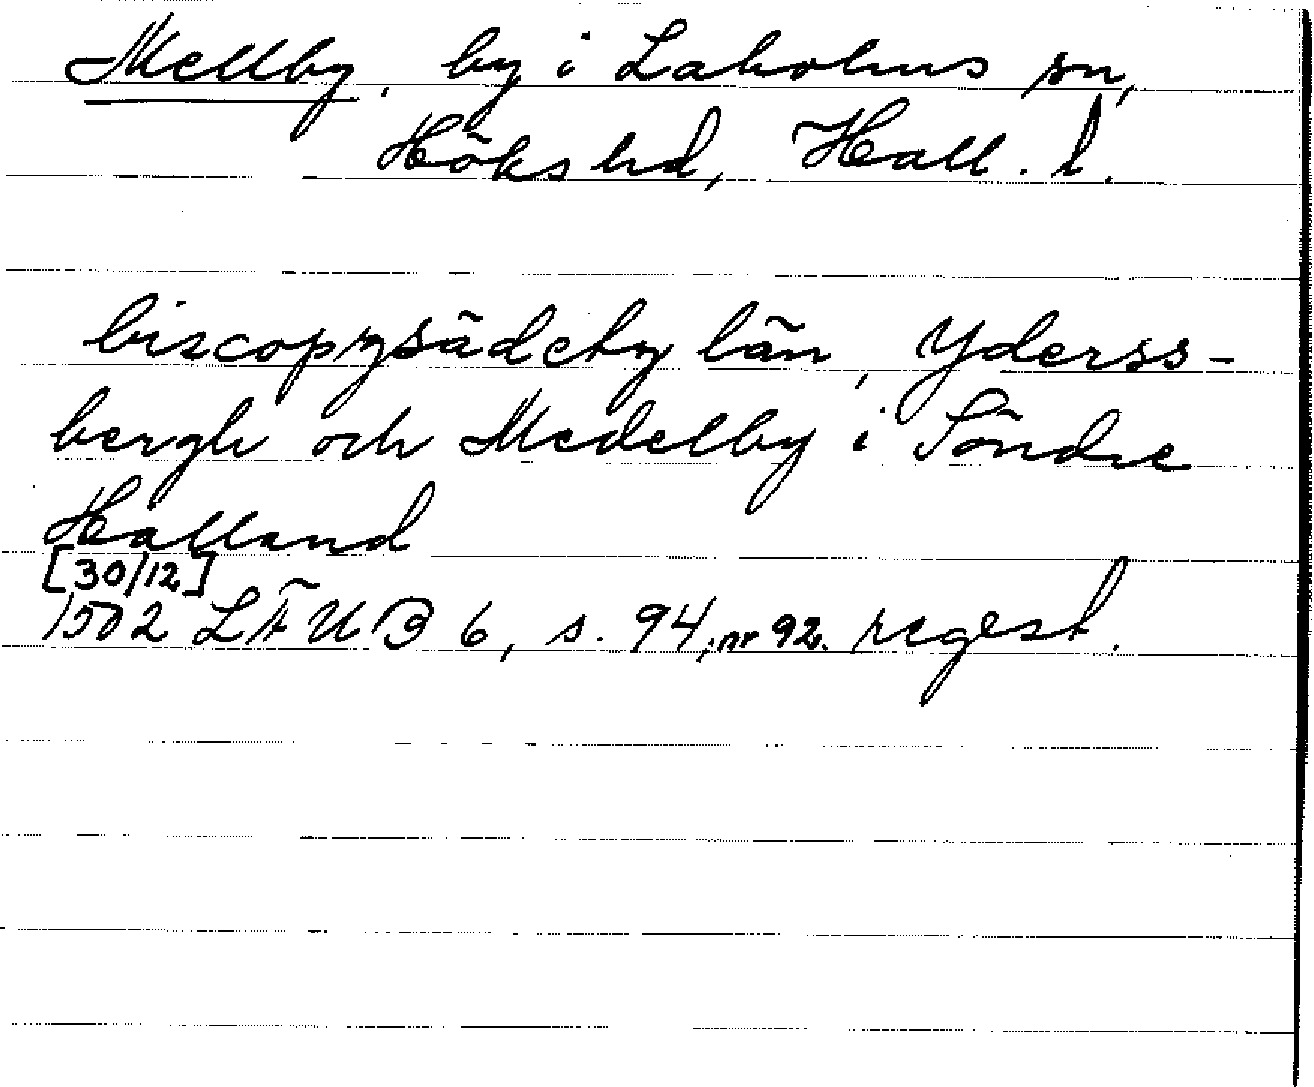 Mellby, by i Laholms sn,
Höks hd, Hall. l.
biscopzsädeby län, Yderss-
bergh och Medelby i Söndre
Halland
[30/12]
1502 LÄUB 6, s. 94, nr 92. regest.